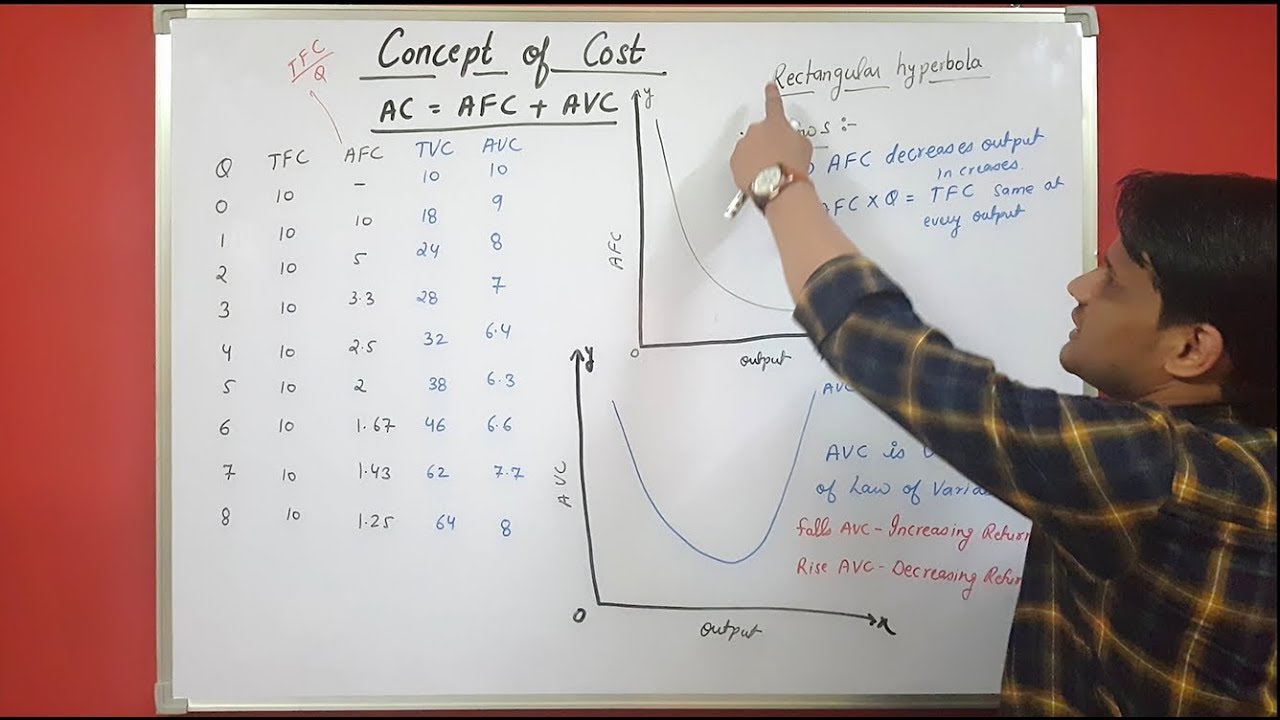 TFC
Q
Concept of Cost
AC = AFC + AVC
Q TFC AFC TVC AVC
0 10 - 10 10
1 10 10 18 9
2 10 5 24 8
3 10 3.3 28 7
4 10 2.5 32 6.4
5 10 2 38 6.3
6 10 1.67 46 6.6
7 10 1.43 62 7.7
8 10 1.25 64 8
y
AFC
0
output
Rectangular hyperbola
AFC decreases output
increases.
AFC X Q = TFC same at
every output
y
AVC
0
output
x
AVC
AVC is
of Law of
Falls AVC - Increasing
Rise AVC - Decreasing